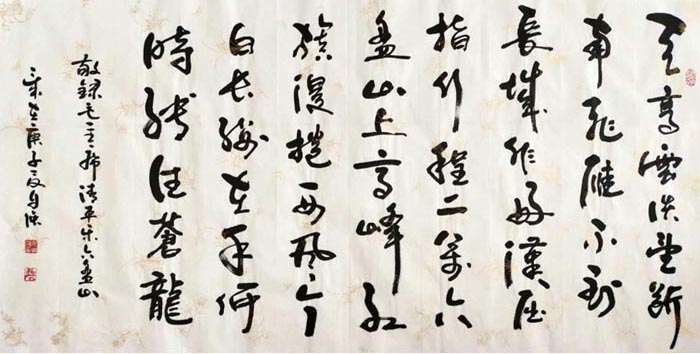 天高雲淡望斷
南飛雁不到
長城非好漢屈
指行程二萬六
盘山上高峰紅
旗漫捲西風今
日長纓在手何
時縛住蒼龍
敬録毛主席清平乐六盘山
歲在庚子夏